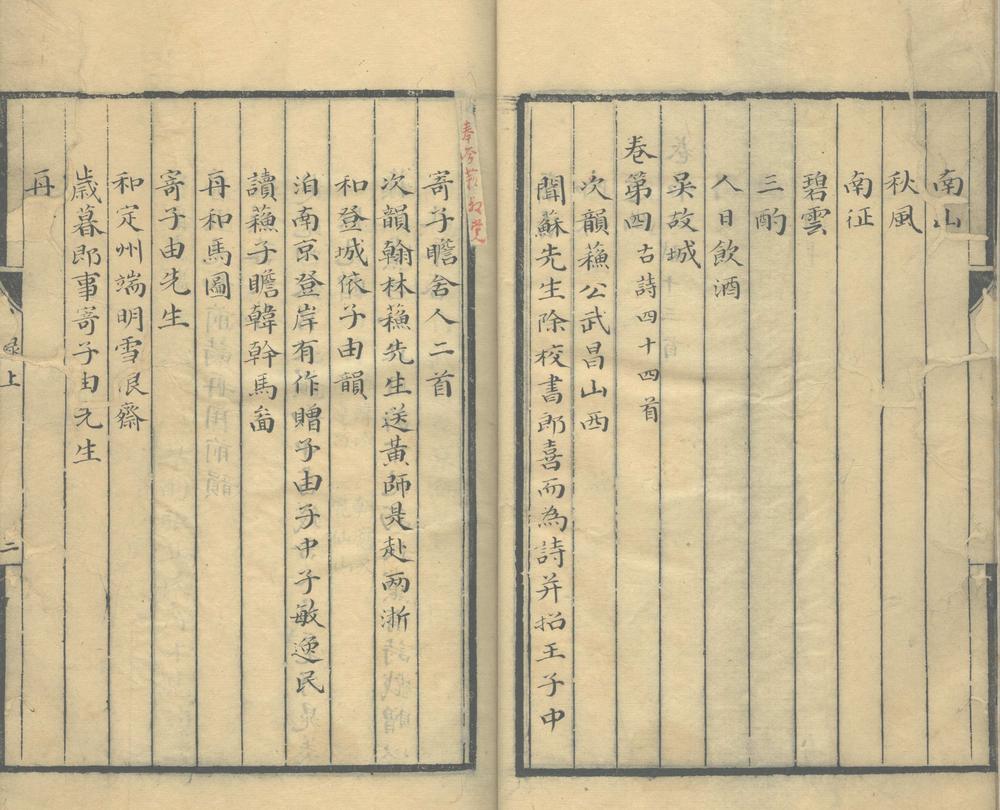 南山
秋風
南征
碧雲
三酌
人日飲酒
吴故城
卷第四 古詩四十四首
次韻蘓公武昌山西
聞蘇先生除校書郎喜而為詩并招王子中
寄子瞻舍人二首
次韻翰林蘓先生送黄師是赴兩浙
和登城依子由韻
泊南京登岸有作贈子由子中子敏逸民
讀蘓子瞻韓幹馬啚
再和馬圖
寄子由先生
和定州端明雪浪齋
歳暮即事寄子由先生
再
上
二